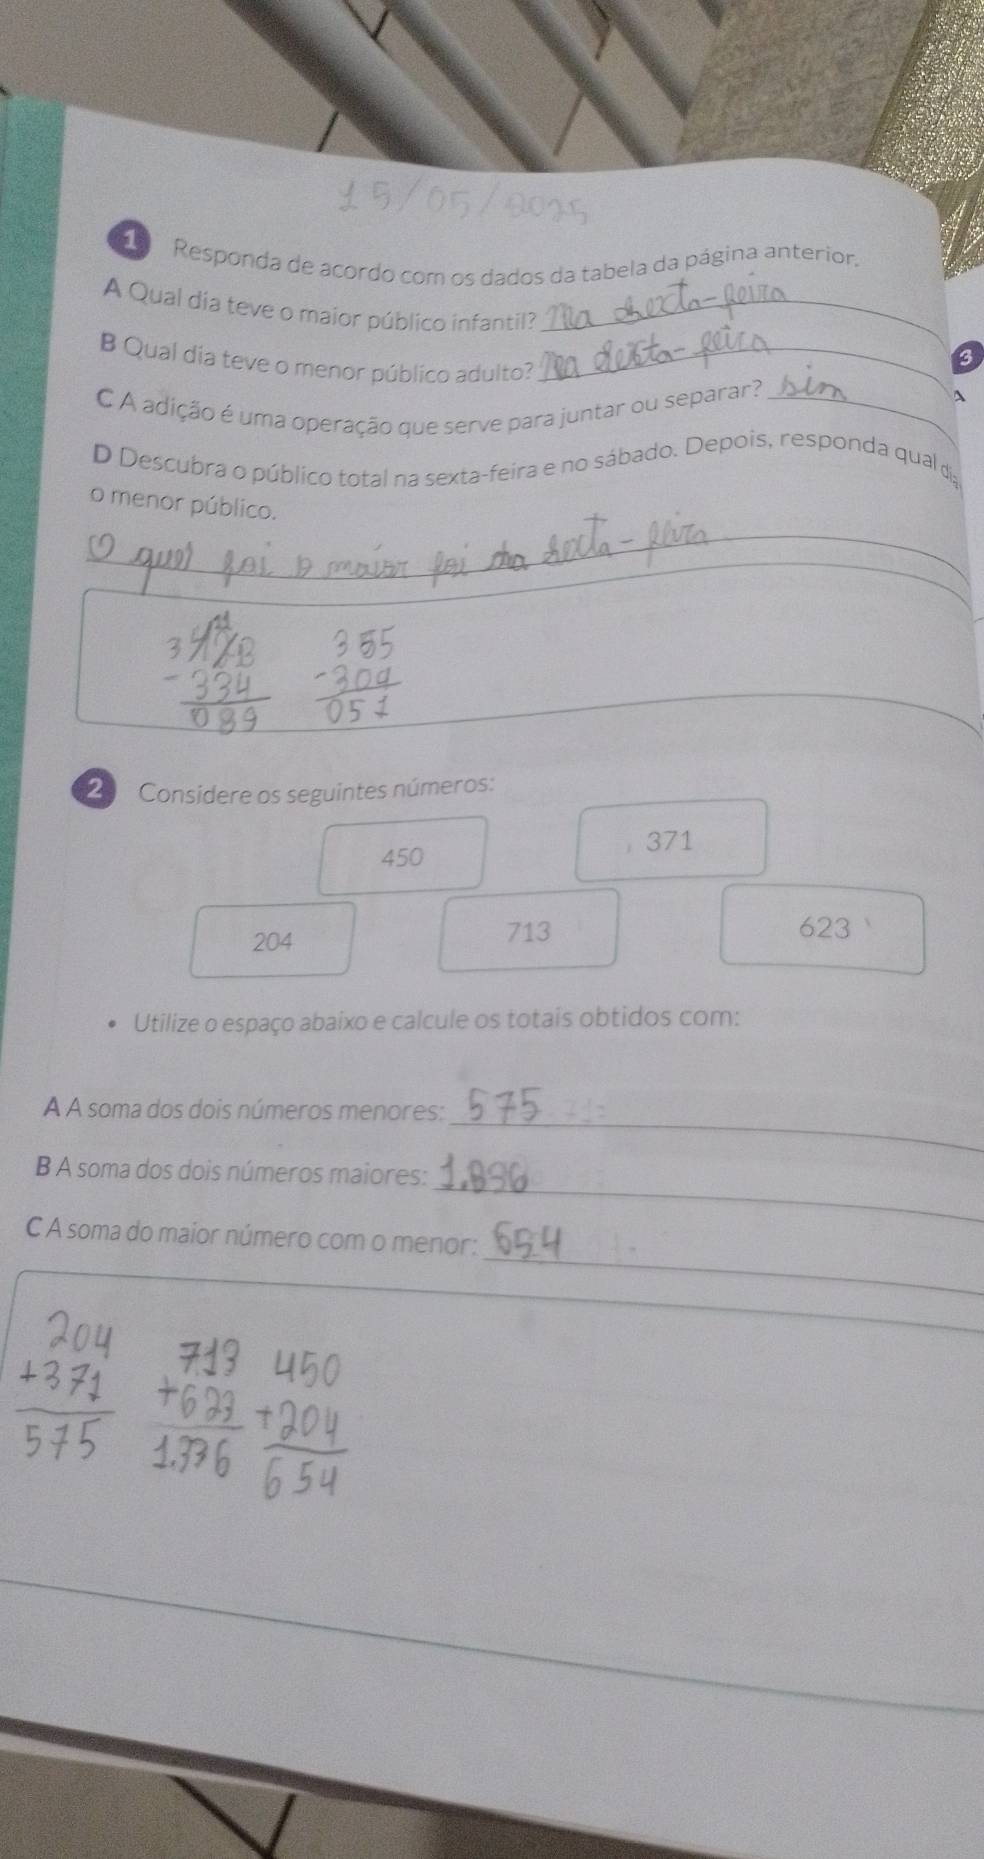 15/05/2025
1 Responda de acordo com os dados da tabela da página anterior.
A Qual dia teve o maior público infantil? Na sexta-feira
B Qual dia teve o menor público adulto? Na sexta-feira
3
A
C A adição é uma operação que serve para juntar ou separar? sim
D Descubra o público total na sexta-feira e no sábado. Depois, responda qual dia
o menor público.
O que foi o maior foi na sexta-feira
355
-334 -304
089 051
2 Considere os seguintes números:
450 371
204 713 623
• Utilize o espaço abaixo e calcule os totais obtidos com:
A A soma dos dois números menores: 575
B A soma dos dois números maiores: 1.336
C A soma do maior número com o menor: 654
204 713 450
+371 +623 +204
575 1.336 654